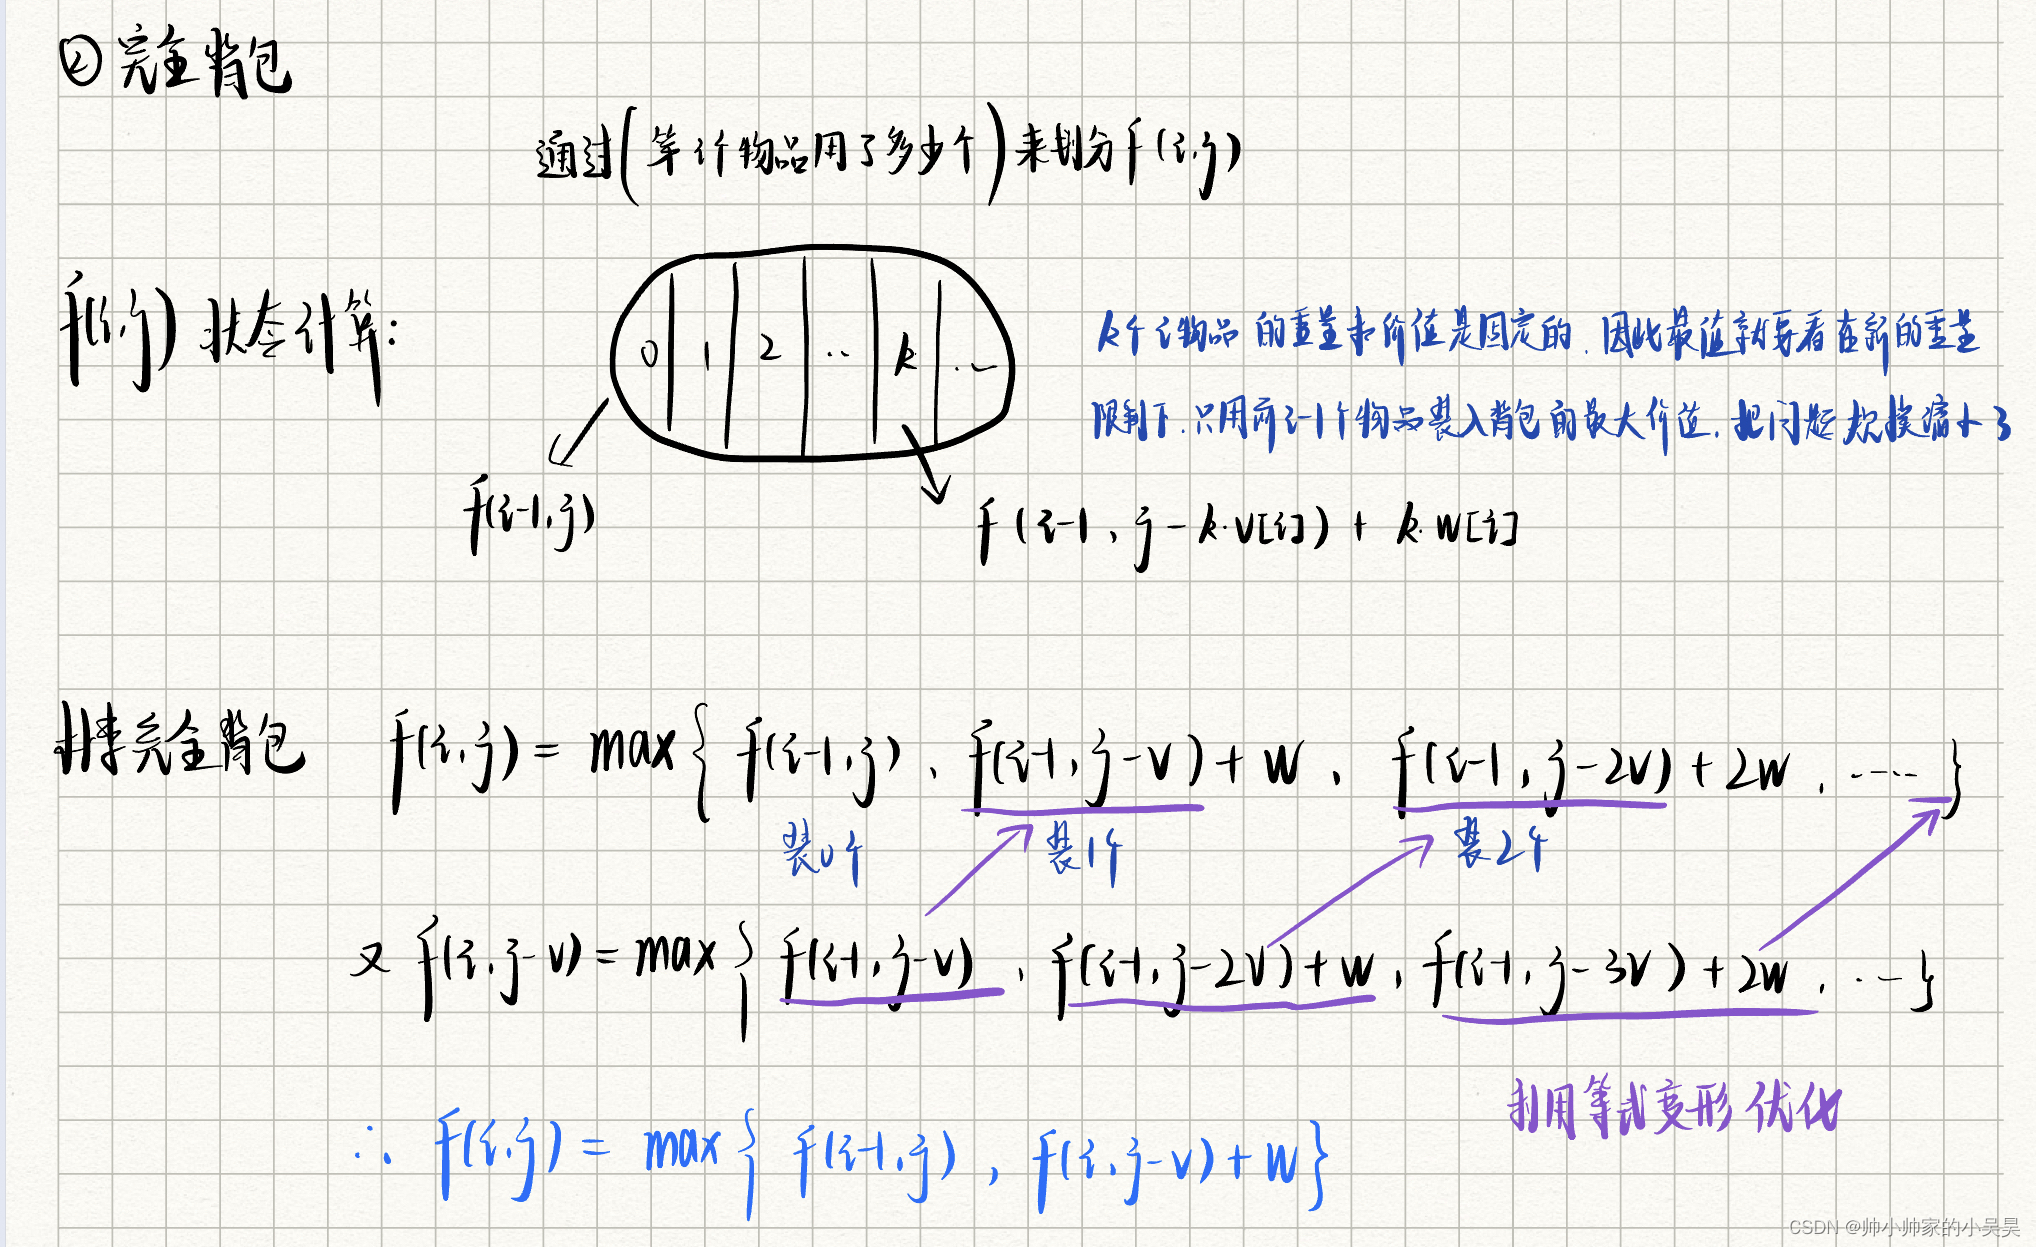 ② 完全背包
通过(第i个物品用了多少个)来划分f(i,j)
f(i,j)状态计算:
0 1 2 .. k ...
k个i物品的重量和价值是固定的.因此最值就要看在新的重量
限制下.只用前i-1个物品装入背包的最大价值.把问题规模缩小了
f(i-1,j)
f(i-1, j-k·v[i]) + k·w[i]
完全背包 f(i,j) = max{ f(i-1,j), f(i-1,j-v)+w, f(i-1,j-2v)+2w, ····· }
装0个 装1个 装2个
又 f(i,j-v) = max{ f(i-1,j-v), f(i-1,j-2v)+w, f(i-1,j-3v)+2w, ··· }
利用等式变形优化
∴ f(i,j) = max{ f(i-1,j), f(i,j-v)+w }
CSDN @帅小帅家的小吴昊